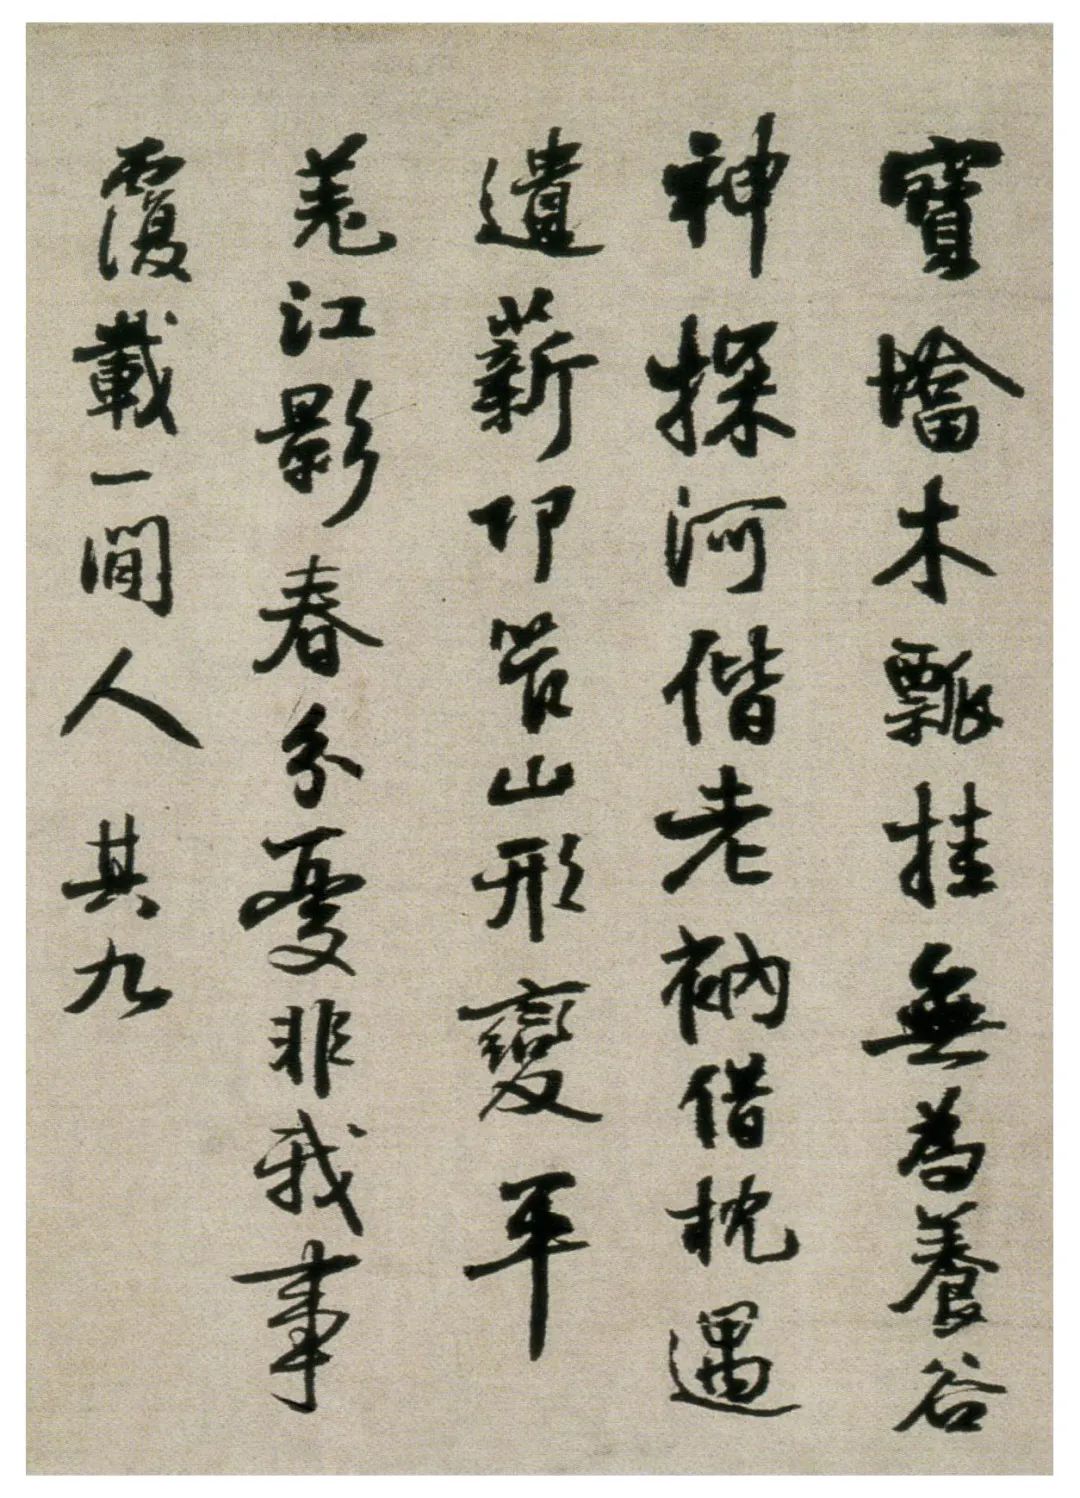 寶墖木瓢挂無為養谷
神探河偕老衲借枕遇
遺薪卭笮山形變平
羌江影春分憂非我事
覆載一間人 其九